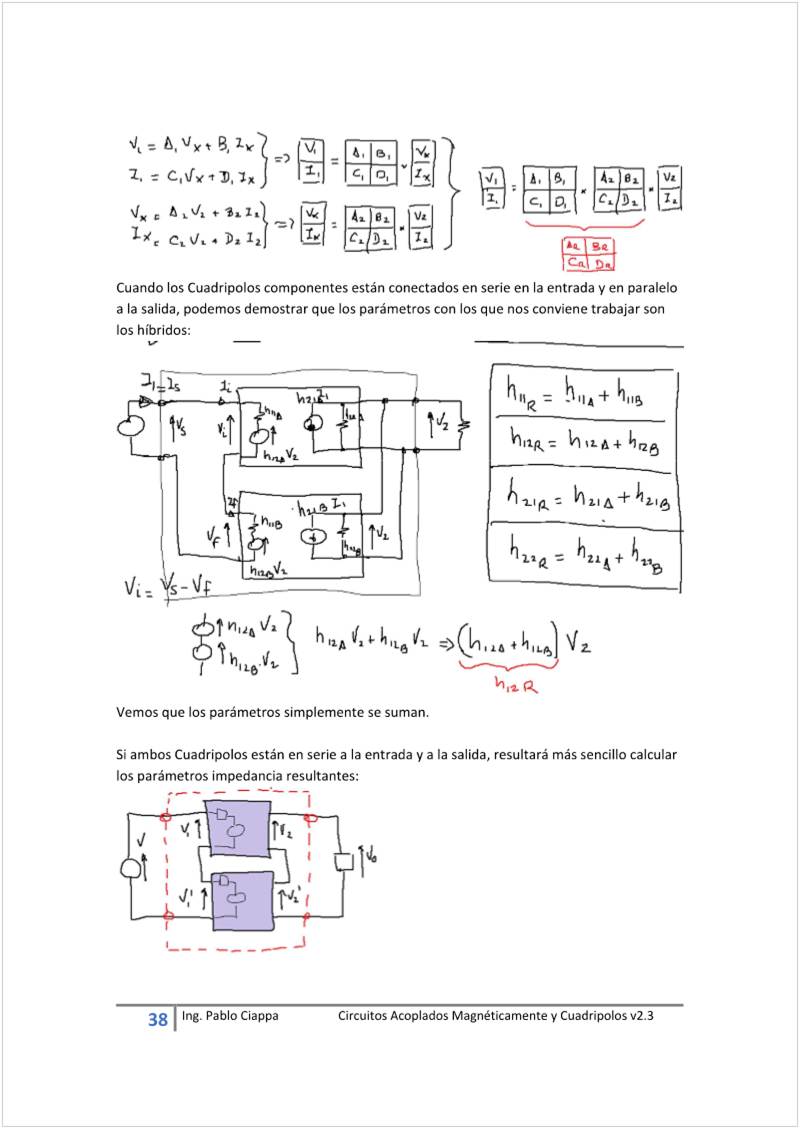 V₁ = A₁Vx + B₁Ix
I₁ = C₁Vx + D₁Ix
=> V₁ I₁ = A₁ B₁ C₁ D₁ × Vx Ix
Vx = A₂V₂ + B₂I₂
Ix = C₂V₂ + D₂I₂
=> Vx Ix = A₂ B₂ C₂ D₂ × V₂ I₂
V₁ I₁ = A₁ B₁ C₁ D₁ × A₂ B₂ C₂ D₂ × V₂ I₂
AR BR
CR DR
Cuando los Cuadripolos componentes están conectados en serie en la entrada y en paralelo
a la salida, podemos demostrar que los parámetros con los que nos conviene trabajar son
los híbridos:
I₁=Is
Ii
h21A I₁
Vs
Vi
h11A
h22A
V₂
h12A V₂
If
h21B I₁
Vf
h11B
h22B
V₂
h12B V₂
Vi = Vs - Vf
h11R = h11A + h11B
h12R = h12A + h12B
h21R = h21A + h21B
h22R = h22A + h22B
h12A V₂
h12B · V₂
h12A V₂ + h12B V₂ => (h12A + h12B) V₂
h12R
Vemos que los parámetros simplemente se suman.
Si ambos Cuadripolos están en serie a la entrada y a la salida, resultará más sencillo calcular
los parámetros impedancia resultantes:
V
V₁
V₂
V₁'
V₂'
Vo
38 Ing. Pablo Ciappa Circuitos Acoplados Magnéticamente y Cuadripolos v2.3